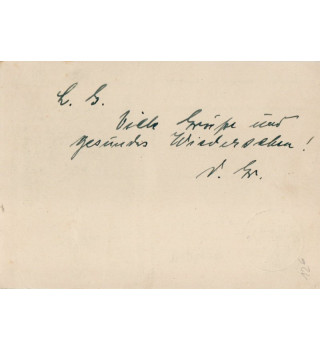 L. G.
Viele Grüße und
gesundes Wiedersehen!
D. Gr.